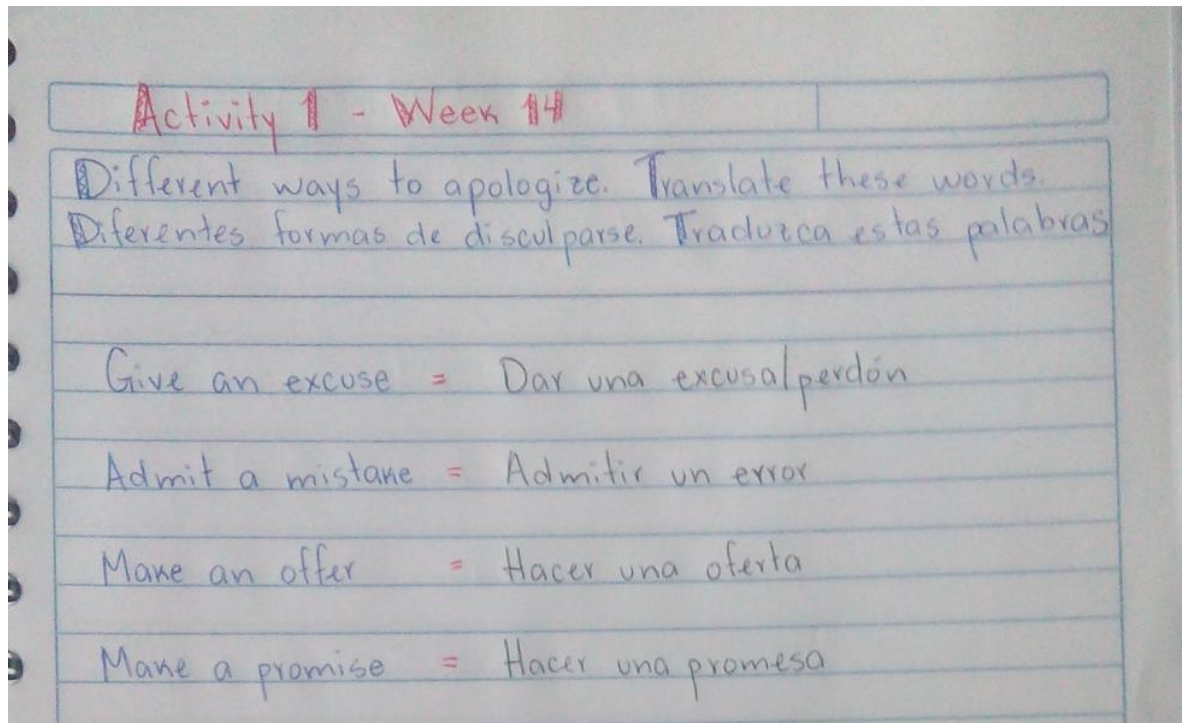 Activity 1 - Week 14
Different ways to apologize. Translate these words.
Diferentes formas de disculparse. Traduzca estas palabras
Give an excuse = Dar una excusa/perdón
Admit a mistake = Admitir un error
Make an offer = Hacer una oferta
Make a promise = Hacer una promesa